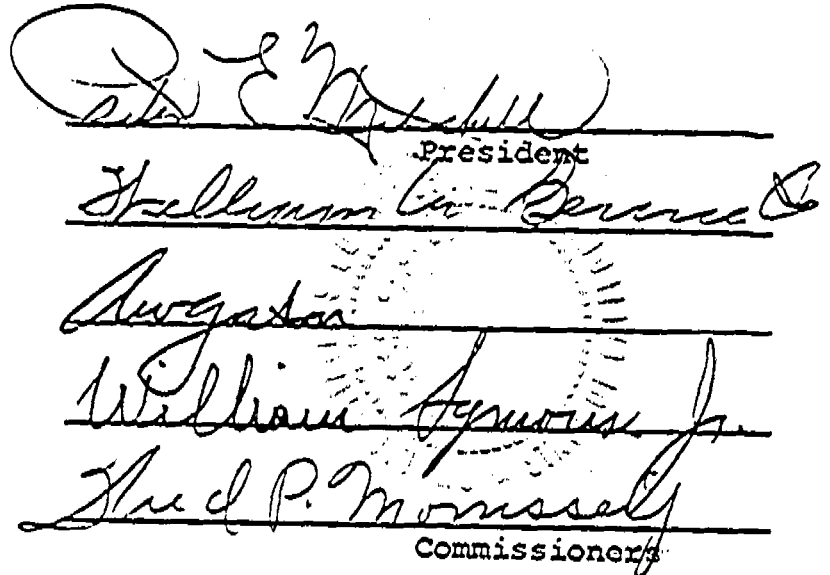 Peter E Mitchell
President
William M. Bennett
William Symons Jr.
Fred P. Morrissey
Commissioners